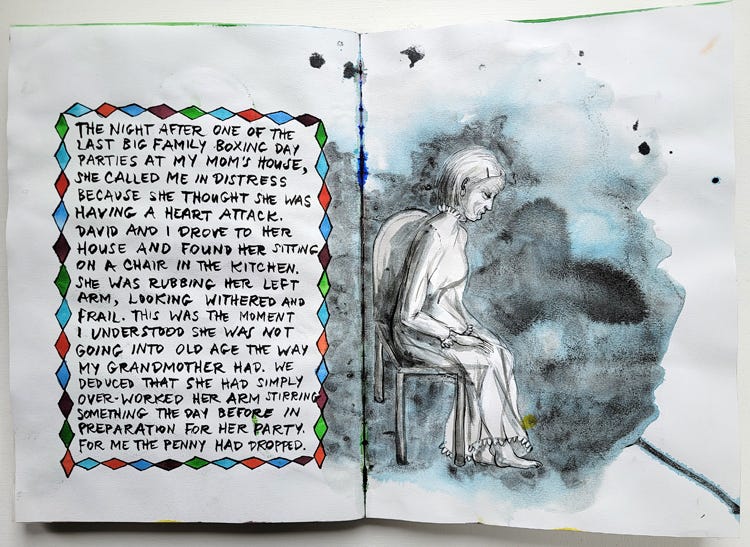 THE NIGHT AFTER ONE OF THE
LAST BIG FAMILY BOXING DAY
PARTIES AT MY MOM'S HOUSE,
SHE CALLED ME IN DISTRESS
BECAUSE SHE THOUGHT SHE WAS
HAVING A HEART ATTACK.
DAVID AND I DROVE TO HER
HOUSE AND FOUND HER SITTING
ON A CHAIR IN THE KITCHEN.
SHE WAS RUBBING HER LEFT
ARM, LOOKING WITHERED AND
FRAIL. THIS WAS THE MOMENT
I UNDERSTOOD SHE WAS NOT
GOING INTO OLD AGE THE WAY
MY GRANDMOTHER HAD. WE
DEDUCED THAT SHE HAD SIMPLY
OVER-WORKED HER ARM STIRRING
SOMETHING THE DAY BEFORE IN
PREPARATION FOR HER PARTY.
FOR ME THE PENNY HAD DROPPED.